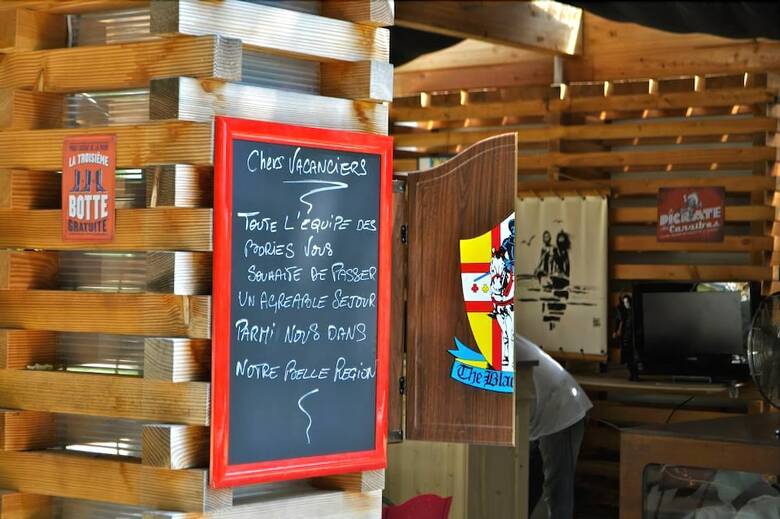 LA TROISIÈME
BOTTE
GRATUITE
Chers VACANCIERS
TOUTE L'ÉQUIPE DES
MORIES VOUS
SOUHAITE DE PASSER
UN AGREABLE SEJOUR
PARMI NOUS DANS
NOTRE BELLE REGION
The Blac
PICRATE
des Caraïbes